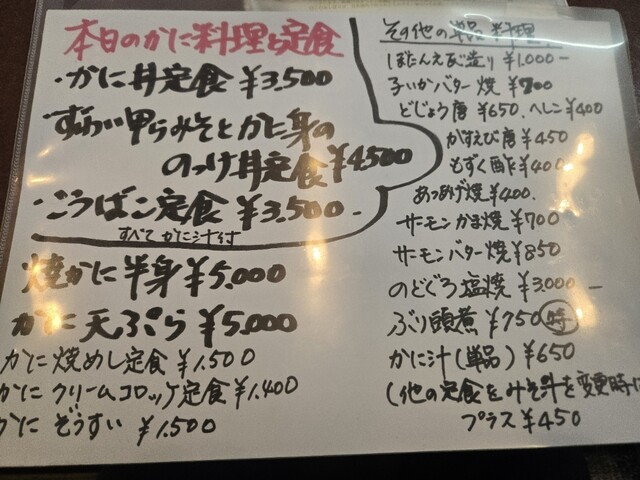 本日のかに料理と定食
・かに丼定食 ¥3,500
ずわい甲らみそとかに身の
のっけ丼定食 ¥4,500
・こうばこ定食 ¥3,500-
すべてかに汁付
焼かに半身 ¥5,000
かに天ぷら ¥5,000
かに焼めし定食 ¥1,500
かにクリームコロッケ定食 ¥1,400
かにぞうすい ¥1,500
その他の単品料理
ぼたんえび造り ¥1,000-
子いかバター焼 ¥700
どじょう唐 ¥650、へしこ ¥400
がすえび唐 ¥450
もずく酢 ¥400
あつあげ焼 ¥400.
サーモンかま焼 ¥700
サーモンバター焼 ¥850
のどぐろ塩焼 ¥3,000-
ぶり頭煮 ¥750 時
かに汁(単品) ¥650
(他の定食をみそ汁を変更時は
プラス ¥450